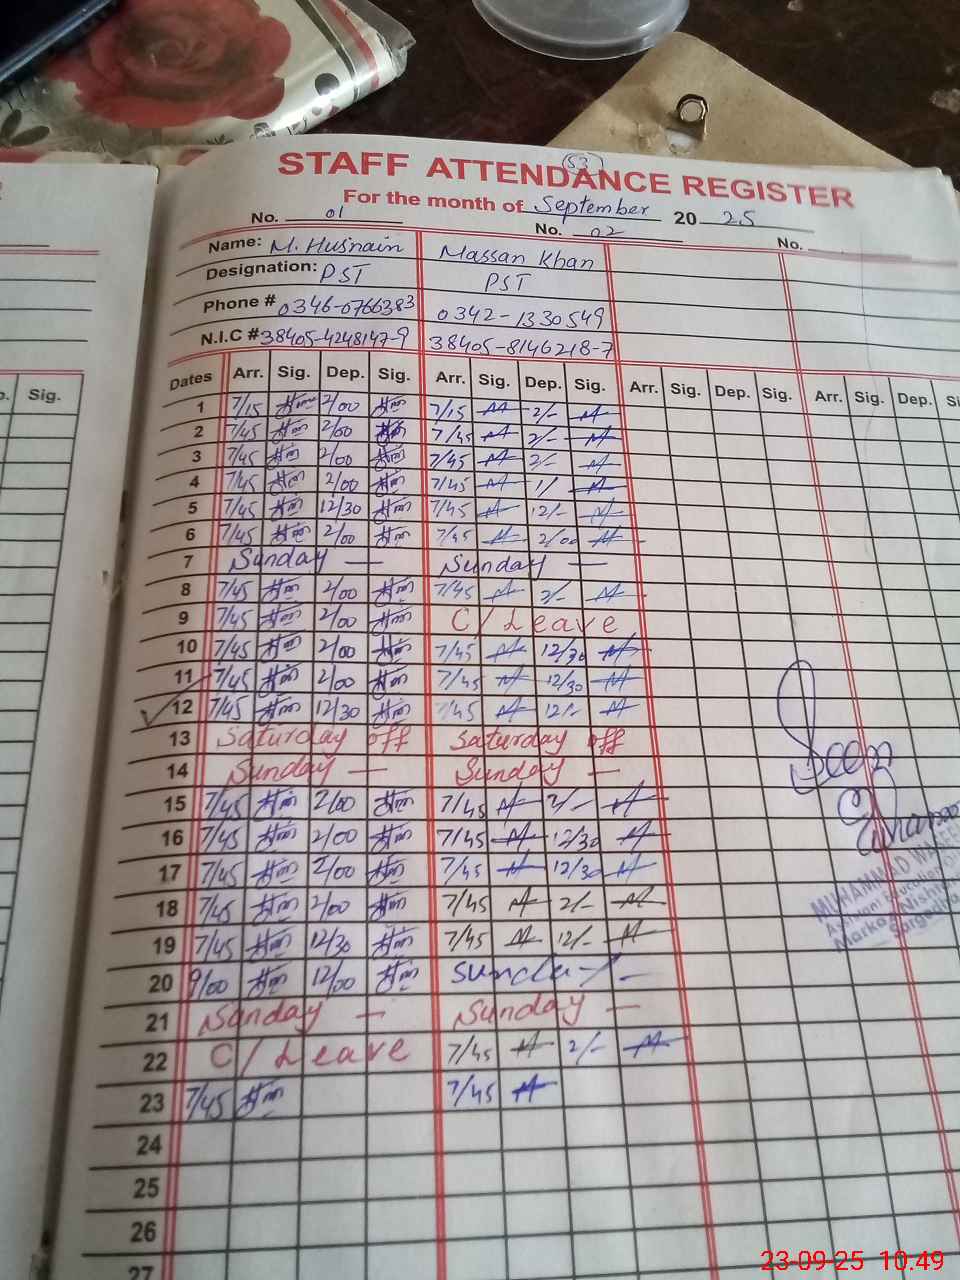 53
STAFF ATTENDANCE REGISTER
For the month of September 2025
No. 01 No. 02 No.
Name: M. Husnain Massan Khan
Designation: PST PST
Phone # 0346-0766383 0342-1330549
N.I.C # 38405-4248147-9 38405-8146218-7
Dates Arr. Sig. Dep. Sig. Arr. Sig. Dep. Sig. Arr. Sig. Dep. Sig. Arr. Sig. Dep.
Sig.
1 7/15 2/00 7/15 2/-
2 7/45 2/00 7/45 2/-
3 7/45 2/00 7/45 2/-
4 7/45 2/00 7/45 1/
5 7/45 12/30 7/45 12/-
6 7/45 2/00 7/45 2/00
7 Sunday — Sunday —
8 7/45 2/00 7/45 2/-
9 7/45 2/00 C/Leave
10 7/45 2/00 7/45 12/30
11 7/45 2/00 7/45 12/30
12 7/45 12/30 7/45 12/-
13 Saturday off Saturday off
14 Sunday — Sunday —
15 7/45 2/00 7/45 2/-
16 7/45 2/00 7/45 12/30
17 7/45 2/00 7/45 12/30
18 7/45 2/00 7/45 2/-
19 7/45 12/30 7/45 12/-
20 9/00 12/00
21 Sunday — Sunday —
22 C/Leave 7/45 2/-
23 7/45 7/45
24
25
26
27
Seen
MUHAMMAD
Education
Markaz
Sargodha
23-09-25 10.49